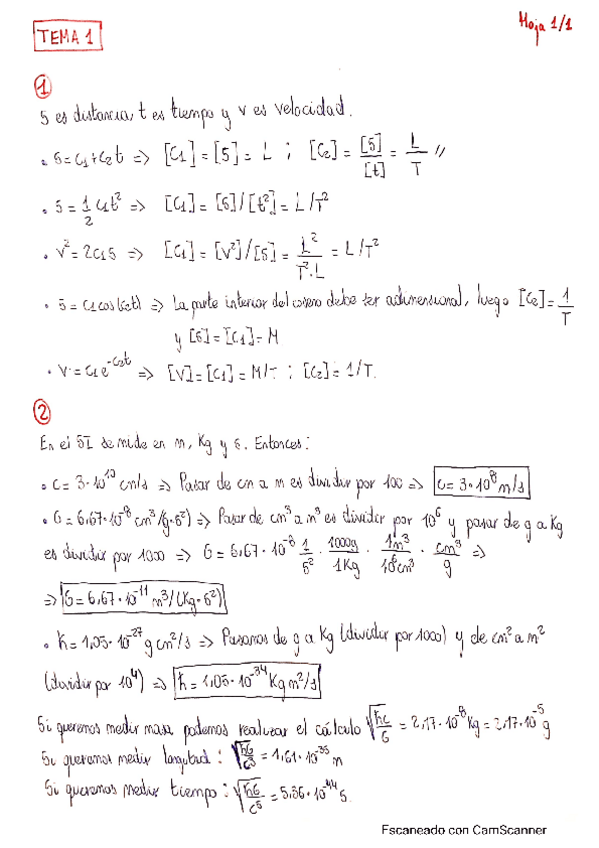 Hoja 1/1
TEMA 1
1
s es distancia, t es tiempo y v es velocidad.
• s = c₁ + c₂t => [c₁] = [s] = L ; [c₂] = [s]/[t] = L/T //
• s = 1/2 c₁t² => [c₁] = [s]/[t²] = L/T²
• v² = 2c₁s => [c₁] = [v²]/[s] = L²/T²·L = L/T²
• s = c₁cos(c₂t) => La parte interior del coseno debe ser adimensional, luego [c₂] = 1/T
y [s] = [c₁] = M
• v = c₁e^-c₂t => [v] = [c₁] = M/T ; [c₂] = 1/T.
2
En el SI se mide en m, Kg y s. Entonces:
• c = 3·10¹⁰ cm/s => Pasar de cm a m es dividir por 100 => c = 3·10⁸ m/s
• G = 6,67·10⁻⁸ cm³/(g·s²) => Pasar de cm³ a m³ es dividir por 10⁶ y pasar de g a Kg
es dividir por 1000 => G = 6,67·10⁻⁸ 1/s² · 1000g/1Kg · 1m³/10⁶cm³ · cm³/g =>
=> G = 6,67·10⁻¹¹ m³/(Kg·s²)
• ħ = 1,05·10⁻²⁷ g cm²/s => Pasamos de g a Kg (dividir por 1000) y de cm² a m²
(dividir por 10⁴) => ħ = 1,05·10⁻³⁴ Kg m²/s
Si queremos medir masa podemos realizar el cálculo √ħc/G = 2,17·10⁻⁸ Kg = 2,17·10⁻⁵ g
Si queremos medir longitud: √ħG/c³ = 1,61·10⁻³⁵ m
Si queremos medir tiempo: √ħG/c⁵ = 5,36·10⁻⁴⁴ s.
Escaneado con CamScanner